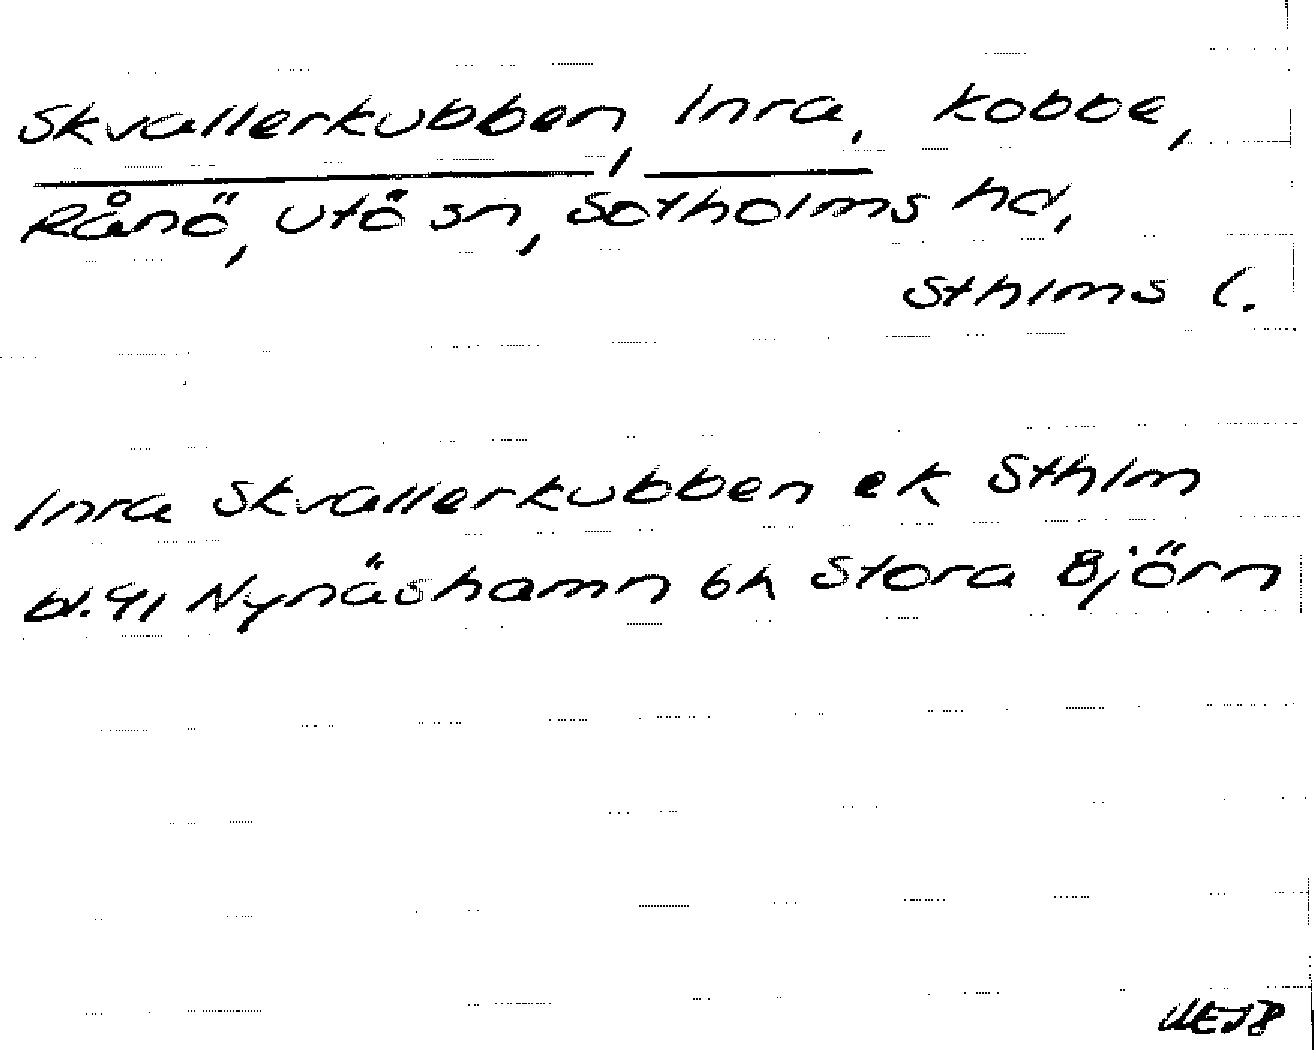 Skvallerkubben, Inra, kobbe,
Rånö, Utö sn, Sotholms hd,
Sthlms l.
Inra Skvallerkubben ek Sthlm
bl. 41 Nynäshamn bh Stora Björn